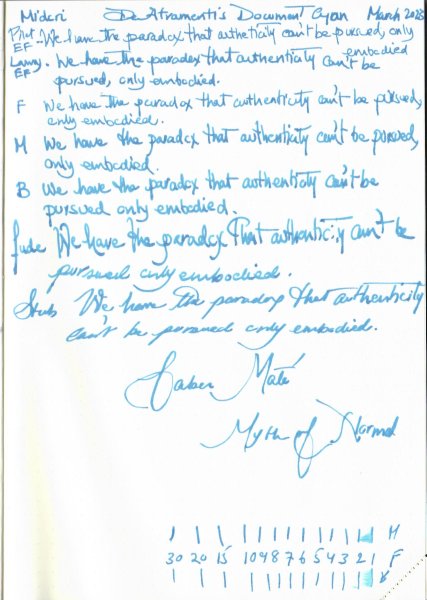 Midori De Atramentis Document Cyan March 2023
Pilot EF - We have the paradox that autheticity can't be pursued, only embodied
Lamy EF. We have the paradox that authenticity can't be
pursued, only embodied.
F We have the paradox that authenticity can't be pursued,
only embodied.
M We have the paradox that authenticity can't be pursued,
only embodied.
B We have the paradox that authenticity can't be
pursued only embodied.
fude We have the paradox that authenticity can't be
pursued only embodied.
Stub We have the paradox that authenticity
can't be pursued only embodied.
Gabor Maté
Myth of Normal
M
30 20 15 10 9 8 7 6 5 4 3 2 1 F